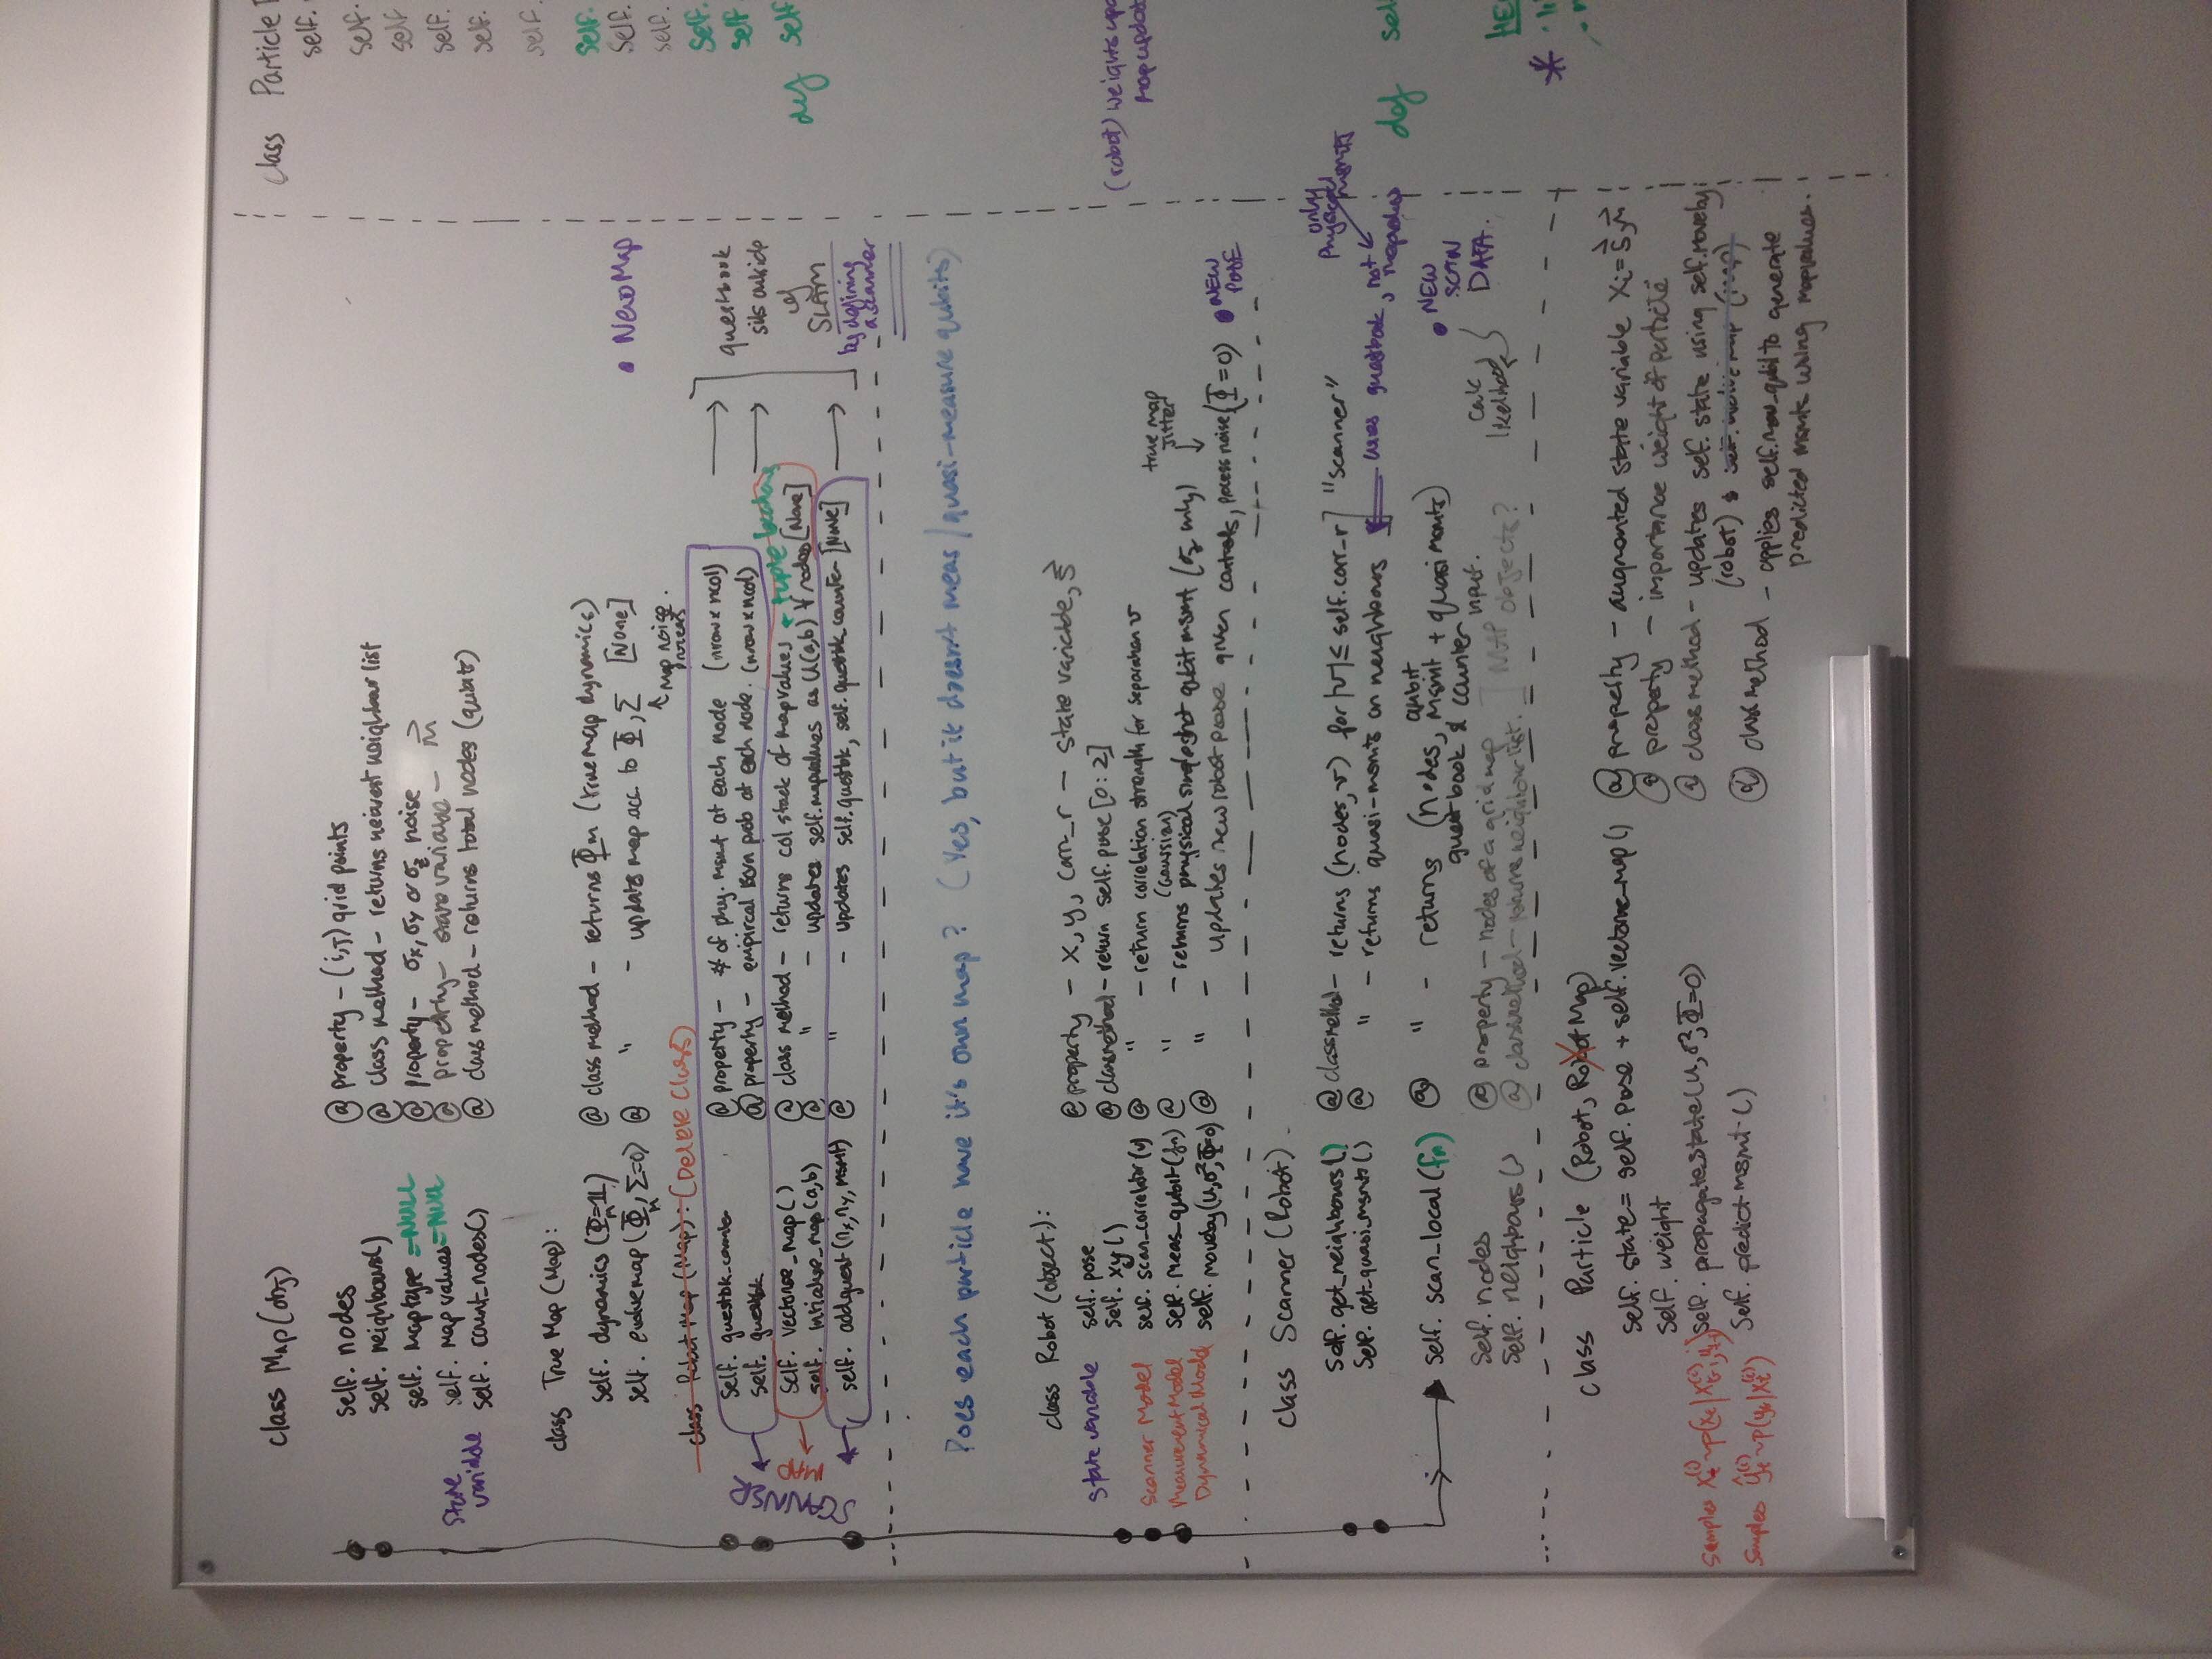 class Map(obj)
self. nodes @ property - (i,j) grid points
self. neighbours() @ class method - returns nearest neighbour list
self. maptype =NULL @ property - σx, σy or σz noise
State variable self. mapvalues =NULL @ property - state variable - m⃗
self. count_nodes() @ class method - returns total nodes (qubits)
class True Map (Map):
self. dynamics (Φm=𝟙) @ class method - returns Φm (true map dynamics)
self. evolvemap (Φm, Σ=0) @ " - updates map acc. to Φ, Σ [None]
↑ map noise process
• New Map
class Robot Map (Map): (Delete Class)
SCANNER
MAP
self. guestbk_counter @ property - # of phy. msmt at each node (nrow x ncol)
self. guestbk @ property - empirical born prob at each node. (nrow x ncol)
self. vectorise_map() @ class method - returns col stack of mapvalues ← tuple locations
self. initialise_map(a,b) @ " - updates self.mapvalues as U(a,b) ∀ nodes [None]
self. addguest (nx, ny, msmt) @ " - updates self.guestbk, self.guestbk_counter [None]
guestbook
sits outside
of
SLAM
by defining
a scanner
Does each particle have it's own map? (Yes, but it doesn't meas/quasi-measure qubits)
class Robot (object):
State variable self. pose @ property - x, y, corr_r - state variable, s⃗
self. xy() @ classmethod - return self.pose[0:2]
Scanner Model self. scan_correlator(v) @ " - return correlation strength for separation v
Measurement Model self. meas_qubit(fn) @ " - returns (Gaussian) physical singleshot qubit msmt (σz only)
true map jitter ↓
Dynamical Model self. moveby(u, σ², Φ=0) @ " - updates new robot pose given controls, process noise (Φ=0) • NEW POSE
class Scanner (Robot)
self. get_neighbours() @ classmethod - returns (nodes, v) for |v| ≤ self.corr_r ] "Scanner"
self. get_quasi_msmts() @ " - returns quasi-msmts on neighbours ← uses guestbook, not mapvalues
only physical msmts
self. scan_local(fn) @ " - returns (nodes, qubit msmt + quasi msmts)
guest book & counter input.
• NEW SCAN DATA.
calc likelihood
self. nodes @ property - nodes of a grid map
self. neighbours() @ classmethod - returns neighbour list.
] MAP objects?
class Particle (Robot, Robot Map)
self. state = self. pose + self.vectorise_map() @ property - augmented state variable Xi = s⃗, m⃗
self. weight @ property - importance weight of particle
Samples self. propagate_state(u, σ², Φ=0) @ classmethod - updates self. state using self.moveby
(robot) & self. evolve map (map)
Samples ŷt(i) ~ p(yt|xt(i)) self. predict msmt () @ classmethod - applies self.meas_qubit to generate
predicted msmts using mapvalues.
class Particle
self.
self.
self
self.
self.
self.
self.
self.
self.
self.
self
def self
(robot) weights
def
*